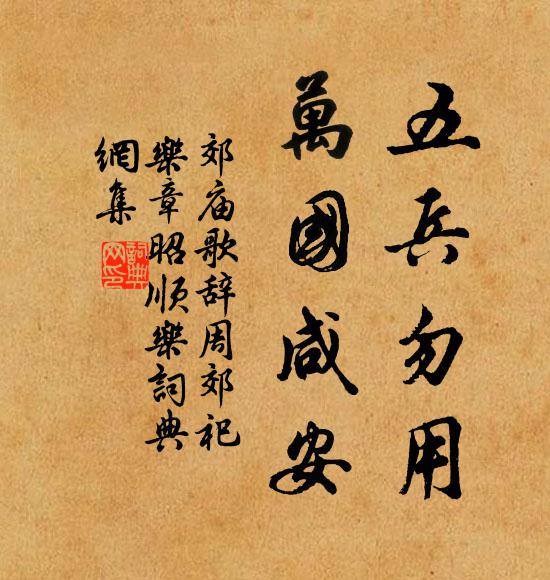 五兵勿用
萬國咸安
郊庙歌辞周郊祀
樂章昭顺樂詞典
網集
詞典网印